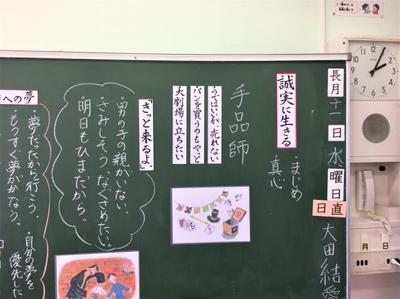 長月十一日水曜日
日直
大田結愛
誠実に生きる
・まじめ
・真心
手品師
うではいいが、売れない
パンを買うのもやっと
大劇場に立ちたい
きっと来るよ。
・男の子の親がいない。
・さみしそう、なぐさめたい。
・明日もひまだから。
への夢
・夢だったから行こう。
・もうすぐ夢がかなう。
・自分の夢を
優先した
月 日